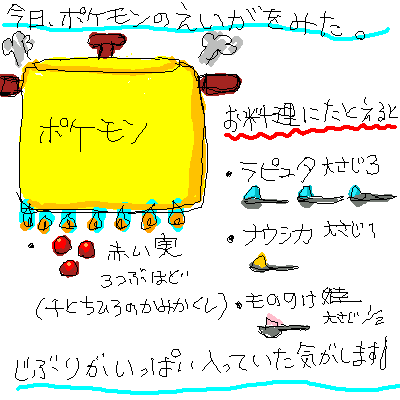 今日、ポケモンのえいがをみた。
ポケモン
お料理にたとえると
・ラピュタ 大さじ3
・ナウシカ 大さじ1
・もののけ 大さじ1/2
・赤い実
3つぶほど
(千とちひろのかみかくし)
じぶりがいっぱい入っていた気がします!